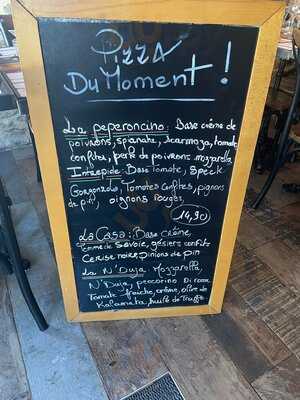 Pizza
Du Moment !
La peperoncino: Base crème de
poivrons, spianata, scarmoza, tomate
confites, perle de poivrons mozzarella
Intrepide: Base Tomate, Speck
Gorgonzola, Tomates confites, pignons
de pin, oignons Rouges,
14,90
La Casa: Base crème,
Emme de Savoie, gésiers confits
Cerise noire, pinions de pin
La N'Duja Mozzarella,
N'Duja, pecorino Di roma
Tomate fraîche, crème, olive de
Kalamata, huile de Truffe